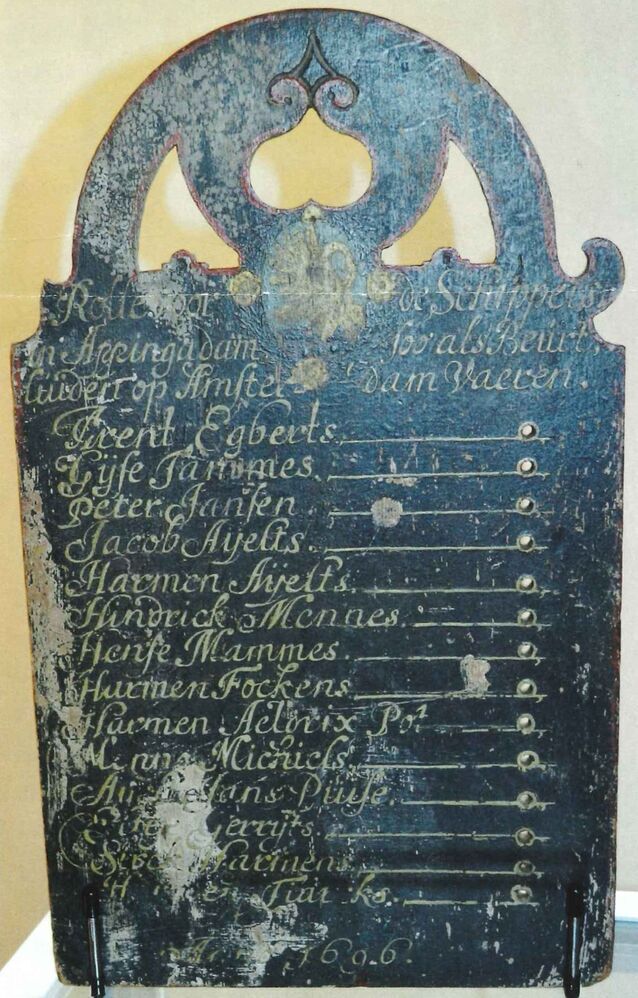 Rolle voor de Schippers
in Appingadam soo als Beurt
luiden op Amstel dam Vaeren.
Arent Egberts
Gijse Jammes
Peter Jansen
Jacob Aijelts
Harmen Aijelts
Hindrick Mennes
Hense Mammes
Harmen Fockens
Harmen Aeldrix Pot
Menne Michiels
Jans Puise
Gerrijts
Harmens

Anno 1696.